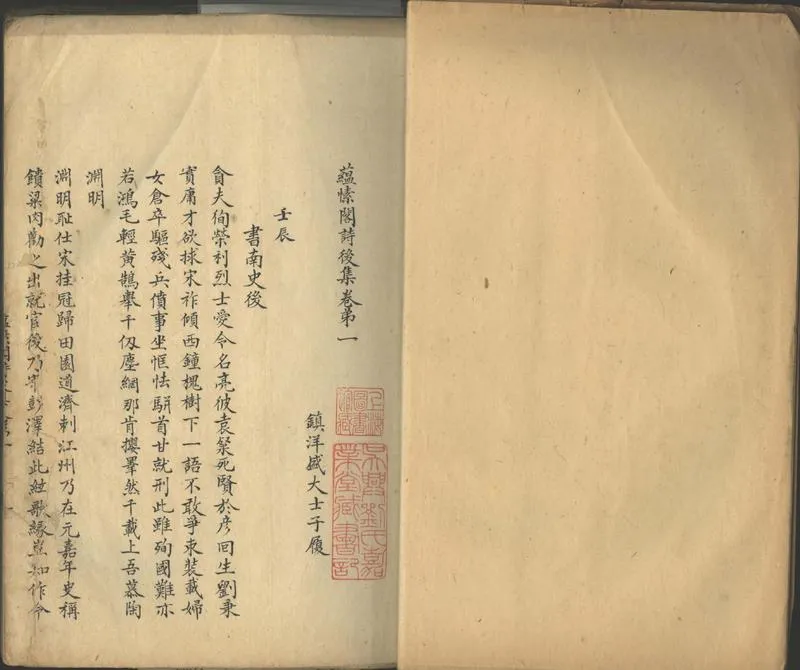 蘊愫閣詩後集卷第一
鎮洋盛大士子履
壬辰
書南史後
貪夫徇榮利烈士愛令名亮彼袁粲死賢於彦回生劉秉
實庸才欲捄宋祚傾西鐘槐樹下一語不敢爭束裝載婦
女倉卒驅殘兵僨事坐恇怯駢首甘就刑此雖殉國難亦
若鴻毛輕黃鵠舉千仭塵網那肯攖睪然千載上吾慕陶
淵明
淵明耻仕宋挂冠歸田園道濟刺江州乃在元嘉年史稱
饋粱肉勸之出就官後乃宰彭澤結此絃歌緣豈知作令
吳興劉氏嘉業堂藏書記
上海圖書館藏